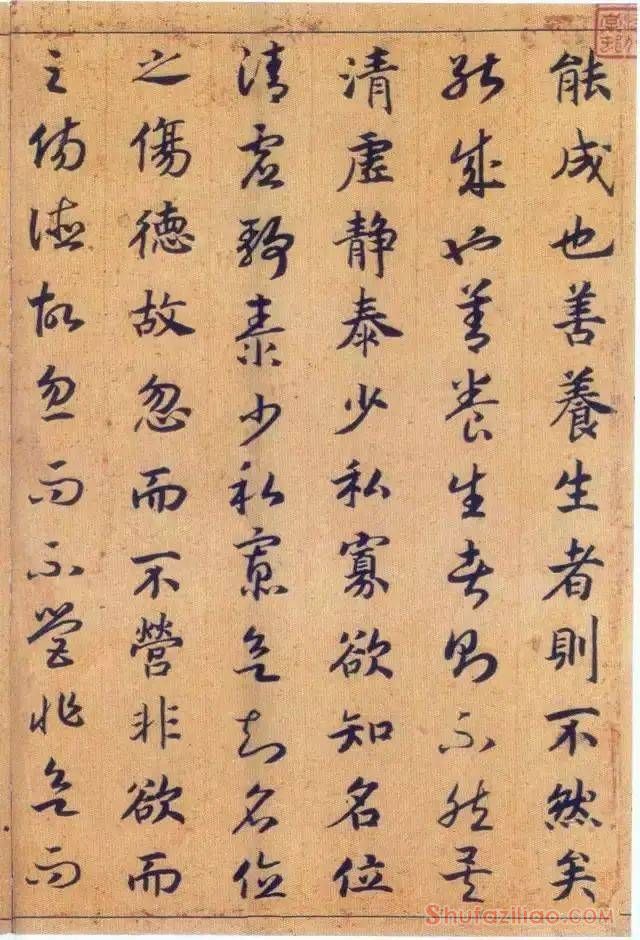 能成也善養生者則不然矣
能成也善養生者則不然矣
清虛静泰少私寡欲知名位
清虛静泰少私寡欲知名位
之傷德故忽而不營非欲而
之傷德故忽而不營非欲而
Shufaziliao.com